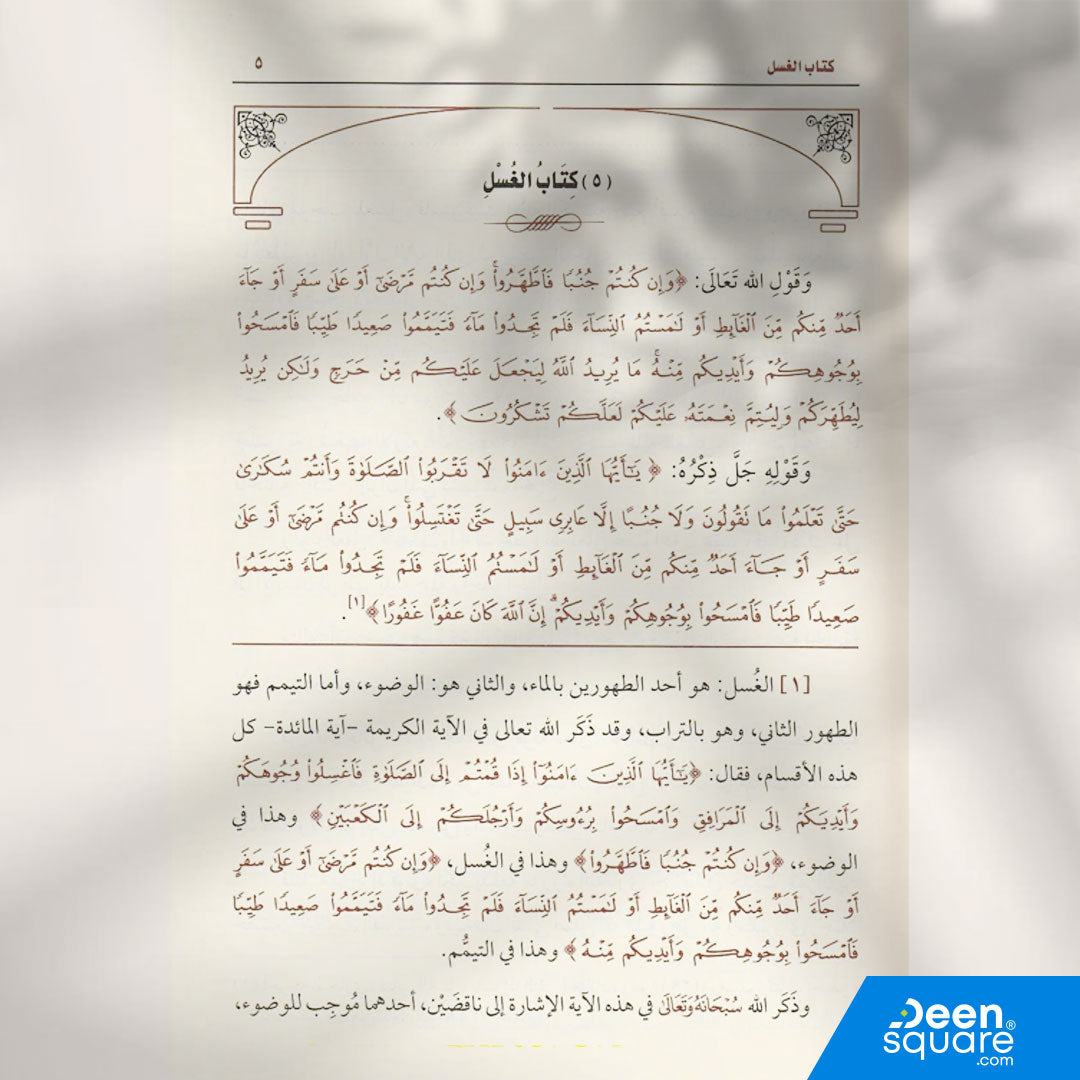 كتاب الغسل ٥
(٥) كِتَابُ الغُسْلِ
وَقَوْلِ الله تَعَالَى: ﴿وَإِن كُنتُمْ جُنُبًا فَٱطَّهَّرُوا۟ ۚ وَإِن كُنتُم مَّرْضَىٰٓ أَوْ عَلَىٰ سَفَرٍ أَوْ جَآءَ
أَحَدٌ مِّنكُم مِّنَ ٱلْغَآئِطِ أَوْ لَـٰمَسْتُمُ ٱلنِّسَآءَ فَلَمْ تَجِدُوا۟ مَآءً فَتَيَمَّمُوا۟ صَعِيدًا طَيِّبًا فَٱمْسَحُوا۟
بِوُجُوهِكُمْ وَأَيْدِيكُم مِّنْهُ ۚ مَا يُرِيدُ ٱللَّهُ لِيَجْعَلَ عَلَيْكُم مِّنْ حَرَجٍ وَلَـٰكِن يُرِيدُ
لِيُطَهِّرَكُمْ وَلِيُتِمَّ نِعْمَتَهُۥ عَلَيْكُمْ لَعَلَّكُمْ تَشْكُرُونَ﴾.
وَقَوْلِهِ جَلَّ ذِكْرُهُ: ﴿يَـٰٓأَيُّهَا ٱلَّذِينَ ءَامَنُوا۟ لَا تَقْرَبُوا۟ ٱلصَّلَوٰةَ وَأَنتُمْ سُكَـٰرَىٰ
حَتَّىٰ تَعْلَمُوا۟ مَا تَقُولُونَ وَلَا جُنُبًا إِلَّا عَابِرِى سَبِيلٍ حَتَّىٰ تَغْتَسِلُوا۟ ۚ وَإِن كُنتُم مَّرْضَىٰٓ أَوْ عَلَىٰ
سَفَرٍ أَوْ جَآءَ أَحَدٌ مِّنكُم مِّنَ ٱلْغَآئِطِ أَوْ لَـٰمَسْتُمُ ٱلنِّسَآءَ فَلَمْ تَجِدُوا۟ مَآءً فَتَيَمَّمُوا۟
صَعِيدًا طَيِّبًا فَٱمْسَحُوا۟ بِوُجُوهِكُمْ وَأَيْدِيكُمْ ۗ إِنَّ ٱللَّهَ كَانَ عَفُوًّا غَفُورًا﴾[١].
[١] الغُسل: هو أحد الطهورين بالماء، والثاني هو: الوضوء، وأما التيمم فهو
الطهور الثاني، وهو بالتراب، وقد ذَكَر الله تعالى في الآية الكريمة -آية المائدة- كل
هذه الأقسام، فقال: ﴿يَـٰٓأَيُّهَا ٱلَّذِينَ ءَامَنُوٓا۟ إِذَا قُمْتُمْ إِلَى ٱلصَّلَوٰةِ فَٱغْسِلُوا۟ وُجُوهَكُمْ
وَأَيْدِيَكُمْ إِلَى ٱلْمَرَافِقِ وَٱمْسَحُوا۟ بِرُءُوسِكُمْ وَأَرْجُلَكُمْ إِلَى ٱلْكَعْبَيْنِ﴾ وهذا في
الوضوء، ﴿وَإِن كُنتُمْ جُنُبًا فَٱطَّهَّرُوا۟﴾ وهذا في الغُسل، ﴿وَإِن كُنتُم مَّرْضَىٰٓ أَوْ عَلَىٰ سَفَرٍ
أَوْ جَآءَ أَحَدٌ مِّنكُم مِّنَ ٱلْغَآئِطِ أَوْ لَـٰمَسْتُمُ ٱلنِّسَآءَ فَلَمْ تَجِدُوا۟ مَآءً فَتَيَمَّمُوا۟ صَعِيدًا طَيِّبًا
فَٱمْسَحُوا۟ بِوُجُوهِكُمْ وَأَيْدِيكُم مِّنْهُ﴾ وهذا في التيمُّم.
وذَكَر الله سُبْحَانَهُ وَتَعَالَىٰ في هذه الآية الإشارة إلى ناقضَيْن، أحدهما مُوجِب للوضوء،
Deen
square®
.com